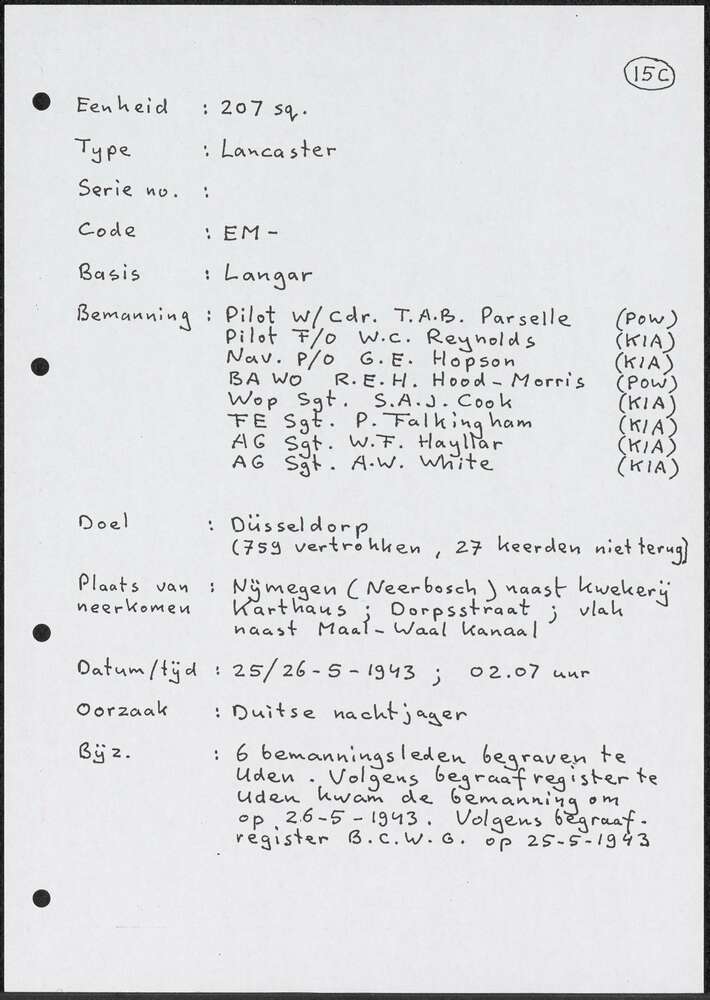 15C
Eenheid : 207 sq.
Type : Lancaster
Serie no. :
Code : EM -
Basis : Langar
Bemanning : Pilot W/Cdr. T.A.B. Parselle (POW)
Pilot F/O W.C. Reynolds (KIA)
Nav. P/O G.E. Hopson (KIA)
BA WO R.E.H. Hood-Morris (POW)
Wop Sgt. S.A.J. Cook (KIA)
FE Sgt. P. Falkingham (KIA)
AG Sgt. W.F. Hayllar (KIA)
AG Sgt. A.W. White (KIA)
Doel : Düsseldorp
(759 vertrokken, 27 keerden niet terug)
Plaats van : Nijmegen (Neerbosch) naast kwekerij
neerkomen Karthaus ; Dorpsstraat ; vlak
naast Maal-Waal kanaal
Datum/tijd : 25/26-5-1943 ; 02.07 uur
Oorzaak : Duitse nachtjager
Bijz. : 6 bemanningsleden begraven te
Uden. Volgens begraafregister te
Uden kwam de bemanning om
op 26-5-1943. Volgens begraaf-
register B.C.W.G. op 25-5-1943